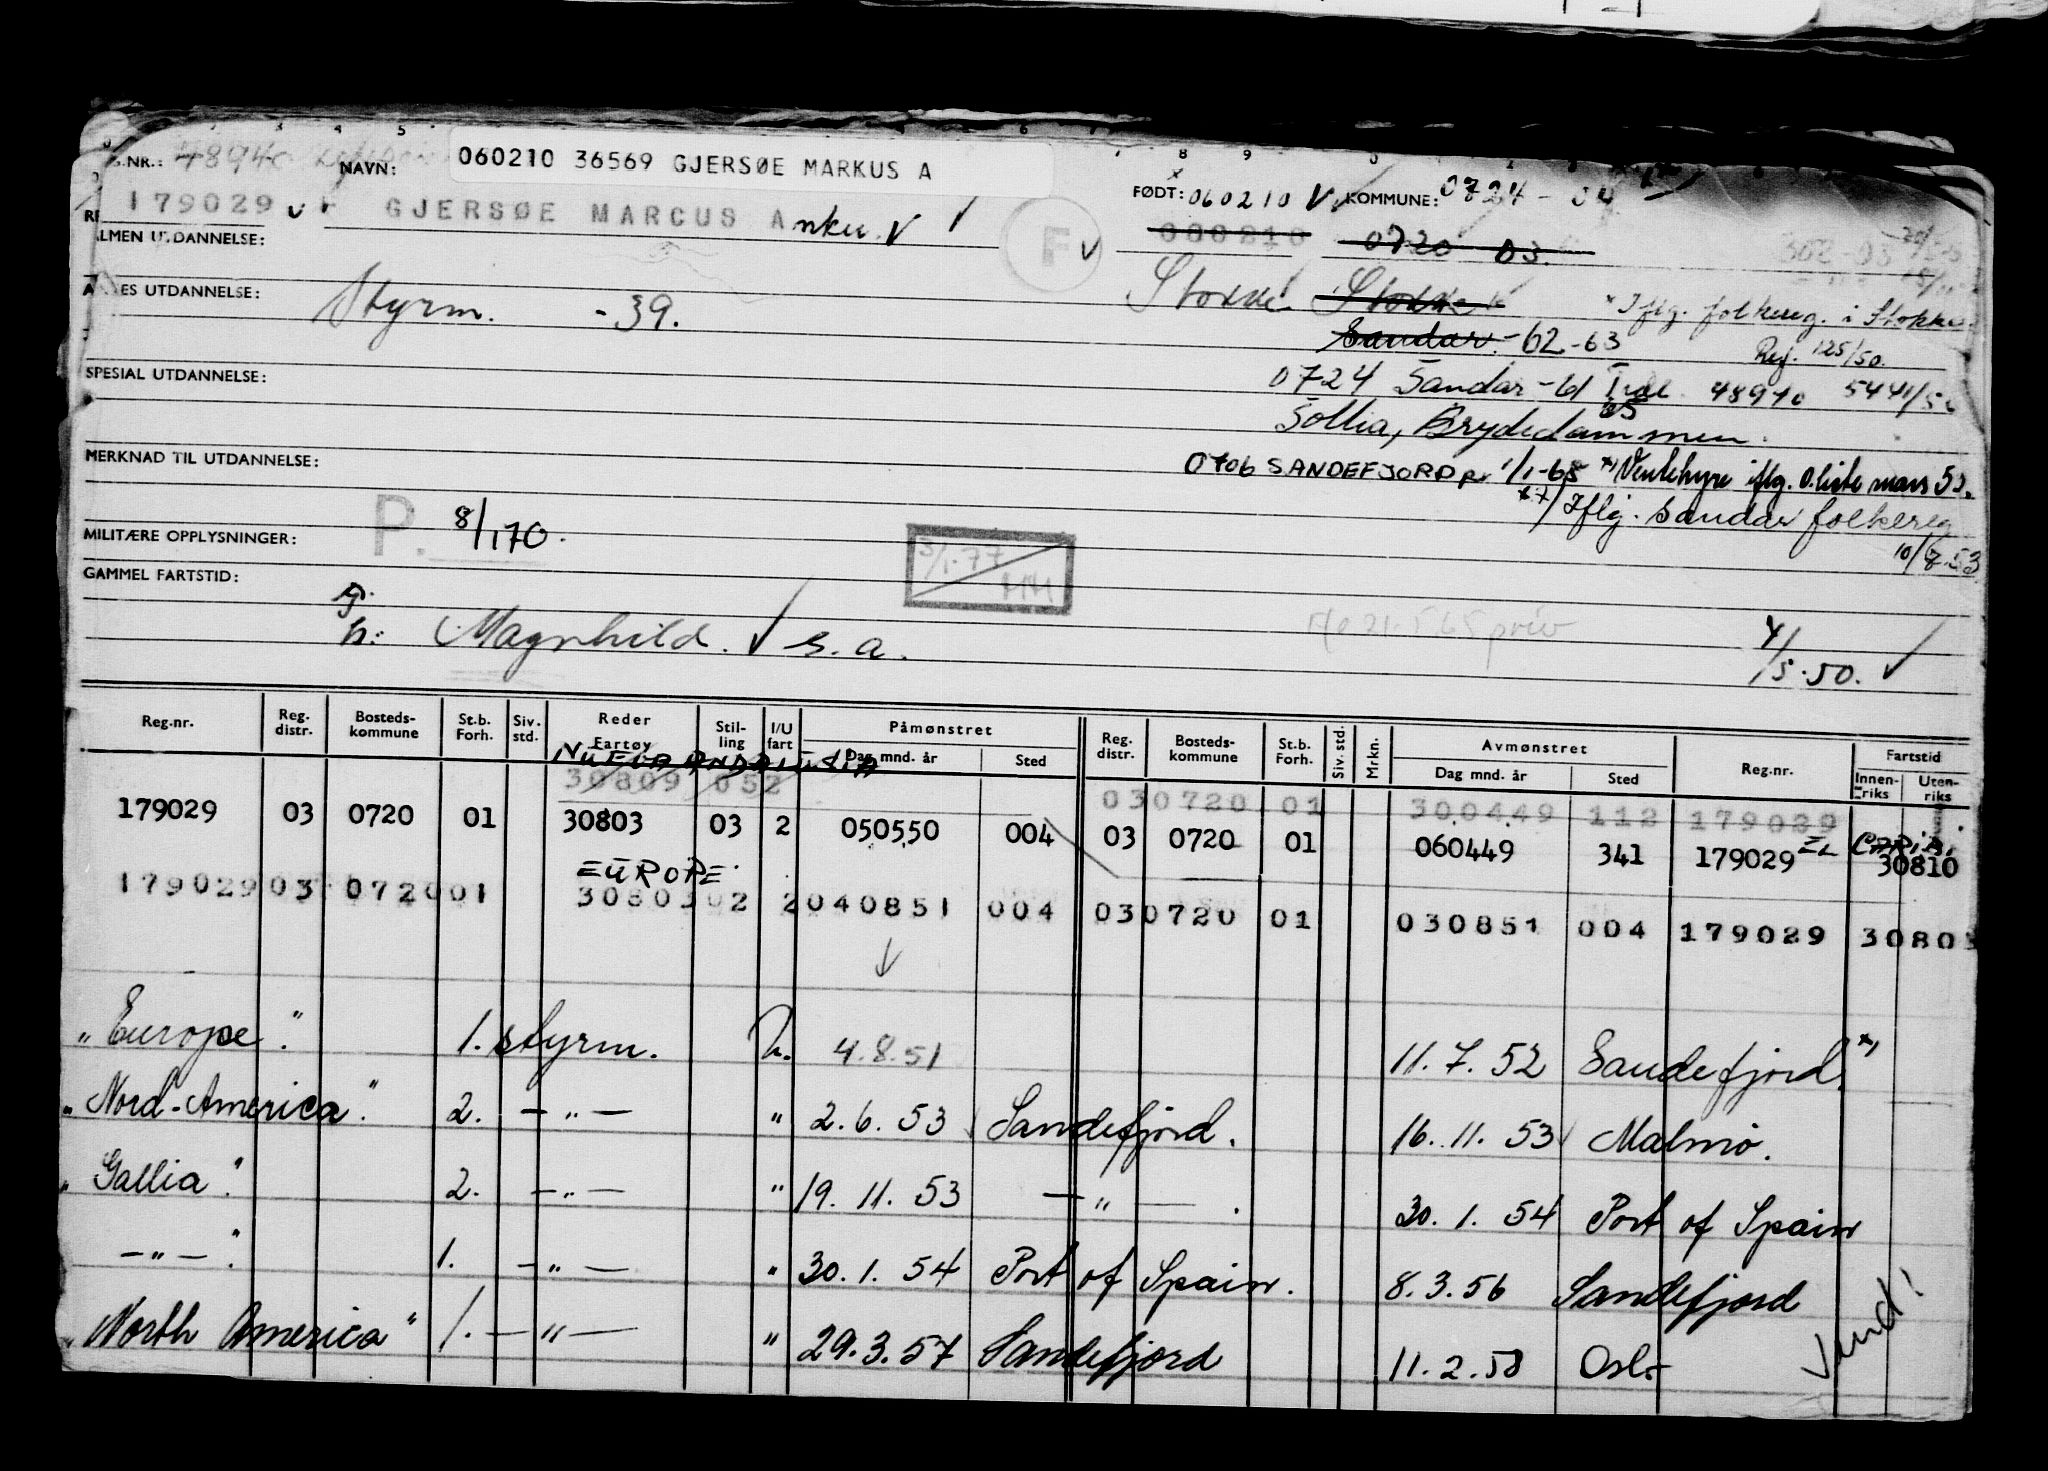 S.NR.: 48940 NAVN: 060210 36569 GJERSØE MARKUS A FØDT: 060210 KOMMUNE: 0724 - 04
179029 GJERSØE MARCUS Anker F
0720 03.
ALMEN UTDANNELSE:
ANNES UTDANNELSE: Styrm. - 39. Stokke Stokke * Iflg. folkereg. i Stokke
Sandar - 62-63 Ref. 125/50.
SPESIAL UTDANNELSE: 0724 Sandar - 61 48940 5441/5
Sollia, Brydedammen.
MERKNAD TIL UTDANNELSE: 0706 SANDEFJORD pr 1/1-65 *) Ventehyre iflg. O.liste mars 53.
P. 8/1 70. **) Iflg. Sandar folkereg
MILITÆRE OPPLYSNINGER: 3/1-77 10/8.53
GAMMEL FARTSTID:
G.
h: Magnhild. s. a. 4/5.50.
Reg.nr. Reg. distr. Bosteds-kommune St.b. Forh. Siv. std. Reder Fartøy Stil-ling I/U fart Påmønstret Dag mnd. år Sted Reg. distr. Bosteds-kommune St.b. Forh. Siv. std. Mrkn. Avmønstret Dag mnd. år Sted Reg.nr. Fartstid Innen-riks Uten-riks
30809 052 030720 01 300449 112 179029
179029 03 0720 01 30803 03 2 050550 004 03 0720 01 060449 341 179029 30810
EUROPE
179029 03 0720 01 30803 02 2 040851 004 03 0720 01 030851 004 179029 3080
"Europe". 1. styrm. U. 4.8.51 11.7.52 Sandefjord. *)
"Nord-America". 2. — " — " 2.6.53 Sandefjord. 16.11.53 Malmö.
"Gallia". 2. — " — " 19.11.53 — " — . 30.1.54 Port of Spain
— " — " 1. — " — " 30.1.54 Port of Spain. 8.3.56 Sandefjord
"North America" 1. — " — " 29.3.57 Sandefjord 11.2.58 Oslo
Vend!